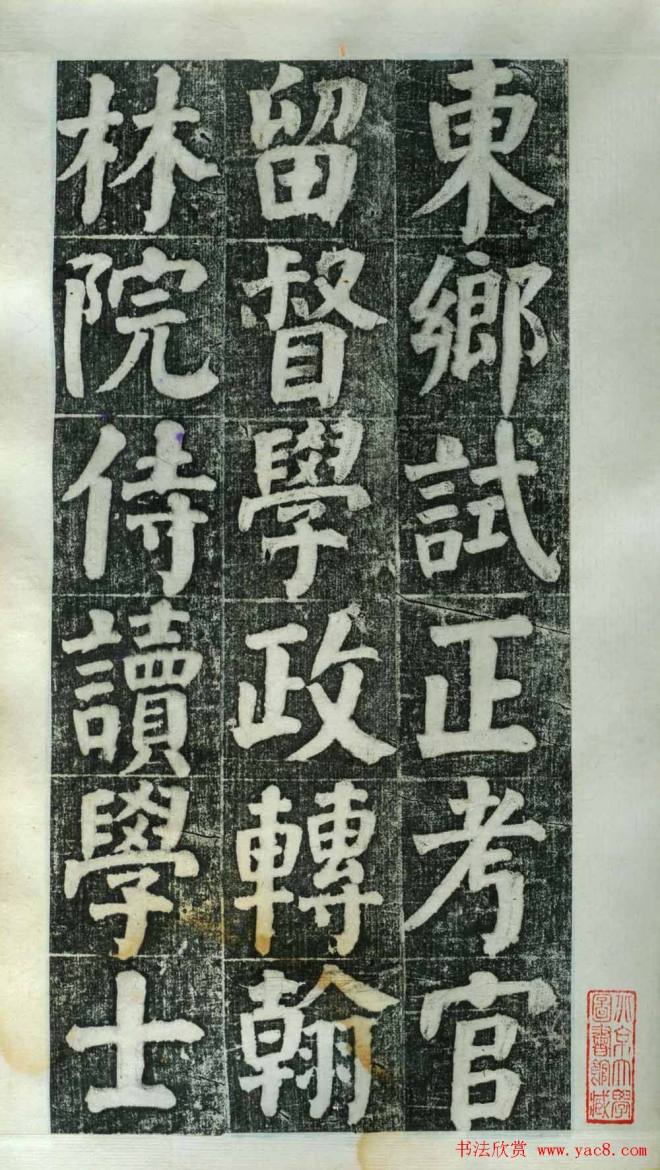 東鄉試正考官
留督學政轉翰
林院侍讀學士
北京大學
圖書館藏
书法欣赏 www.yac8.com